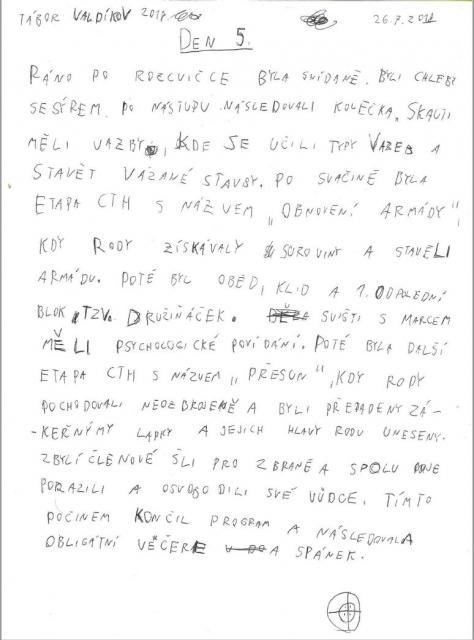 TÁBOR VALDÍKOV 2017 26.7.2017
DEN 5.
RÁNO PO ROZCVIČCE BYLA SNÍDANĚ. BYLI CHLEBY
SE SÝREM. PO NÁSTUPU NÁSLEDOVALI KOLEČKA. SKAUTI
MĚLI VAZBY, KDE SE UČILI TYPY VAZEB A
STAVĚT VÁZANÉ STAVBY. PO SVAČINĚ BYLA
ETAPA CTH S NÁZVEM „OBNOVENÍ ARMÁDY",
KDY RODY ZÍSKÁVALY SUROVINY A STAVĚLI
ARMÁDU. POTÉ BYL OBĚD, KLID A 1. ODPOLEDNÍ
BLOK, TZV. DRUŽIŇÁČEK. SVIŠTI S MARCEM
MĚLI PSYCHOLOGICKÉ POVÍDÁNÍ. POTÉ BYLA DALŠÍ
ETAPA CTH S NÁZVEM „PŘESUN", KDY RODY
POCHODOVALI NEOZBROJENĚ A BYLI PŘEPADENY ZÁ-
-KEŘNÝMY LAPKY A JEJICH HLAVY RODU UNESENY.
ZBYLÍ ČLENOVÉ ŠLI PRO ZBRANĚ A SPOLU
PORAZILI A OSVOBODILI SVÉ VŮDCE. TÍMTO
POČINEM KONČIL PROGRAM A NÁSLEDOVALA
OBLIGÁTNÍ VEČEŘE A SPÁNEK.